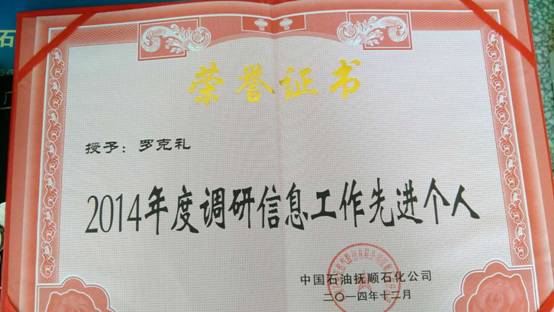 荣誉证书
授予：罗克礼
2014年度调研信息工作先进个人
中国石油抚顺石化公司
二〇一四年十二月
石